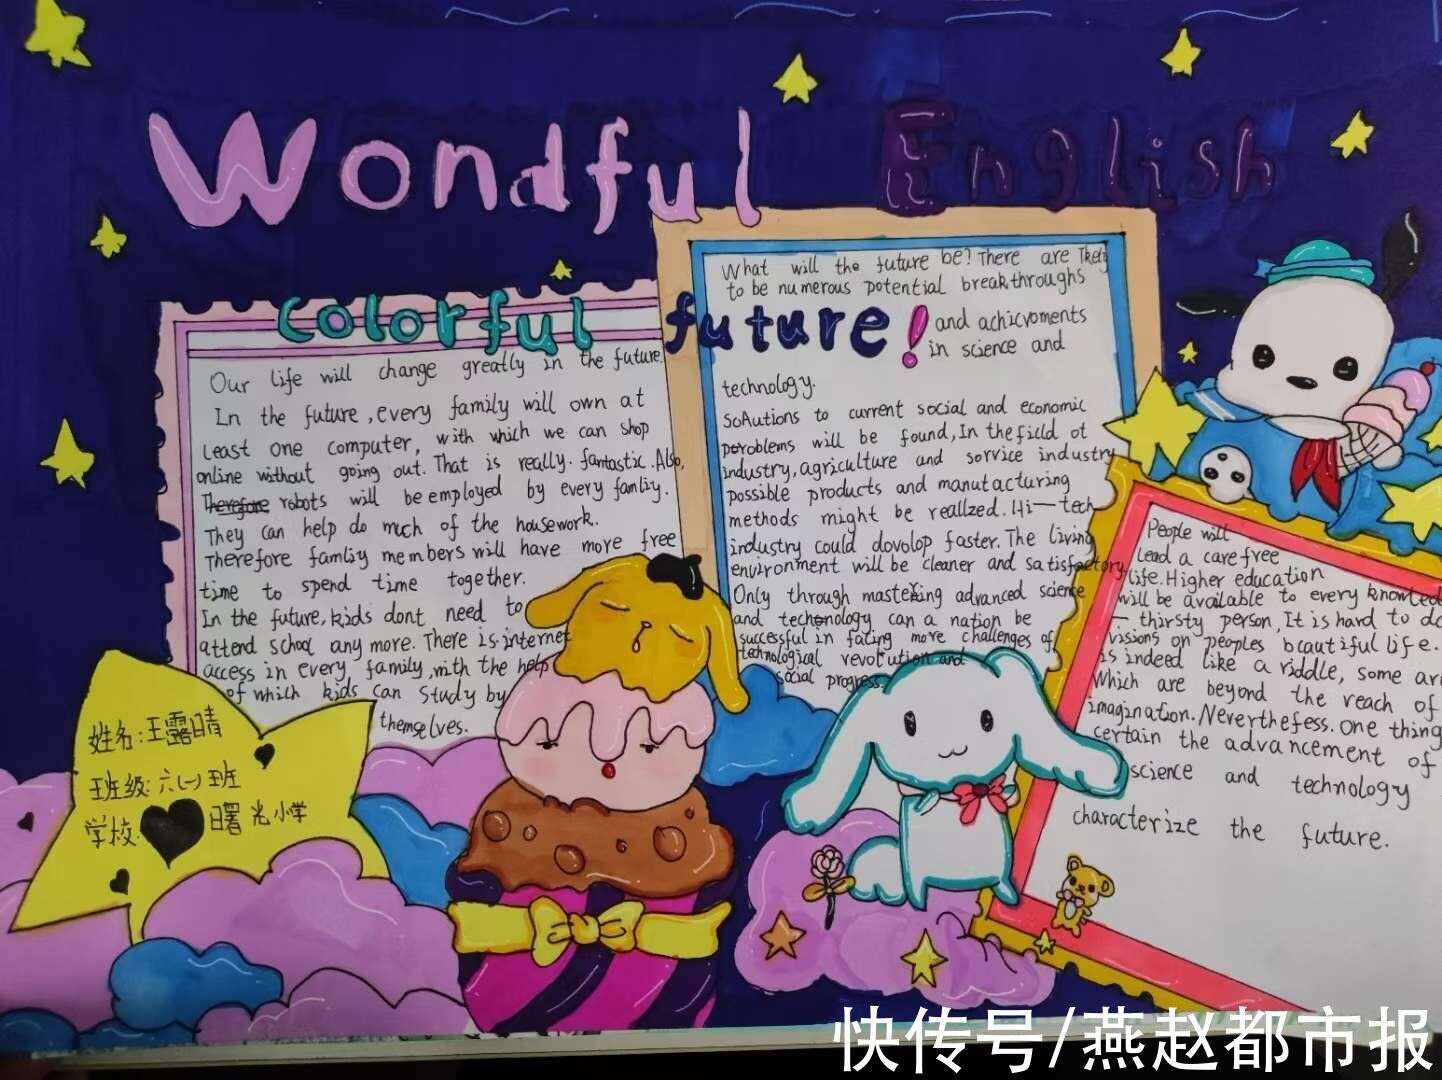 Wondful English
colorful future!
Our life will change greatly in the future.
In the future, every family will own at
Least one computer, with which we can shop
online without going out. That is really. fantastic. Also,
Therefore robots will be employed by every famliy.
They can help do much of the housework.
Therefore famliy members will have more free
time to spend time together.
In the future, kids dont need to
attend school any more. There is internet
access in every family, with the help
of which kids can study by
themselves.
What will the future be? There are likely
to be numerous potential breakthroughs
and achicvoments
in science and
technology.
SoAutions to current social and economic
poroblems will be found, In the filld ot
industry, agriculture and sorvice industry
possible products and manutacturing
methods might be reallzed. Hi-tech
industry could dovolop faster. The living
environment will be cleaner and satisfactory.
Only through mastering advanced science
and technology can a nation be
successful in facing more challenges of
technological revolution and
social progress.
People will
Lead a carefree
life. Higher education
will be available to every knowled
— thirsty person, It is hard to do
visions on peoples bcautiful life.
is indeed like a riddle, some are
Which are beyond the reach of
imagination. Neverthefess. one thing
certain the advancement of
science and technology
characterize the future.
姓名:王露晴
班级:六(一)班
学校: 曙光小学
快传号/燕赵都市报